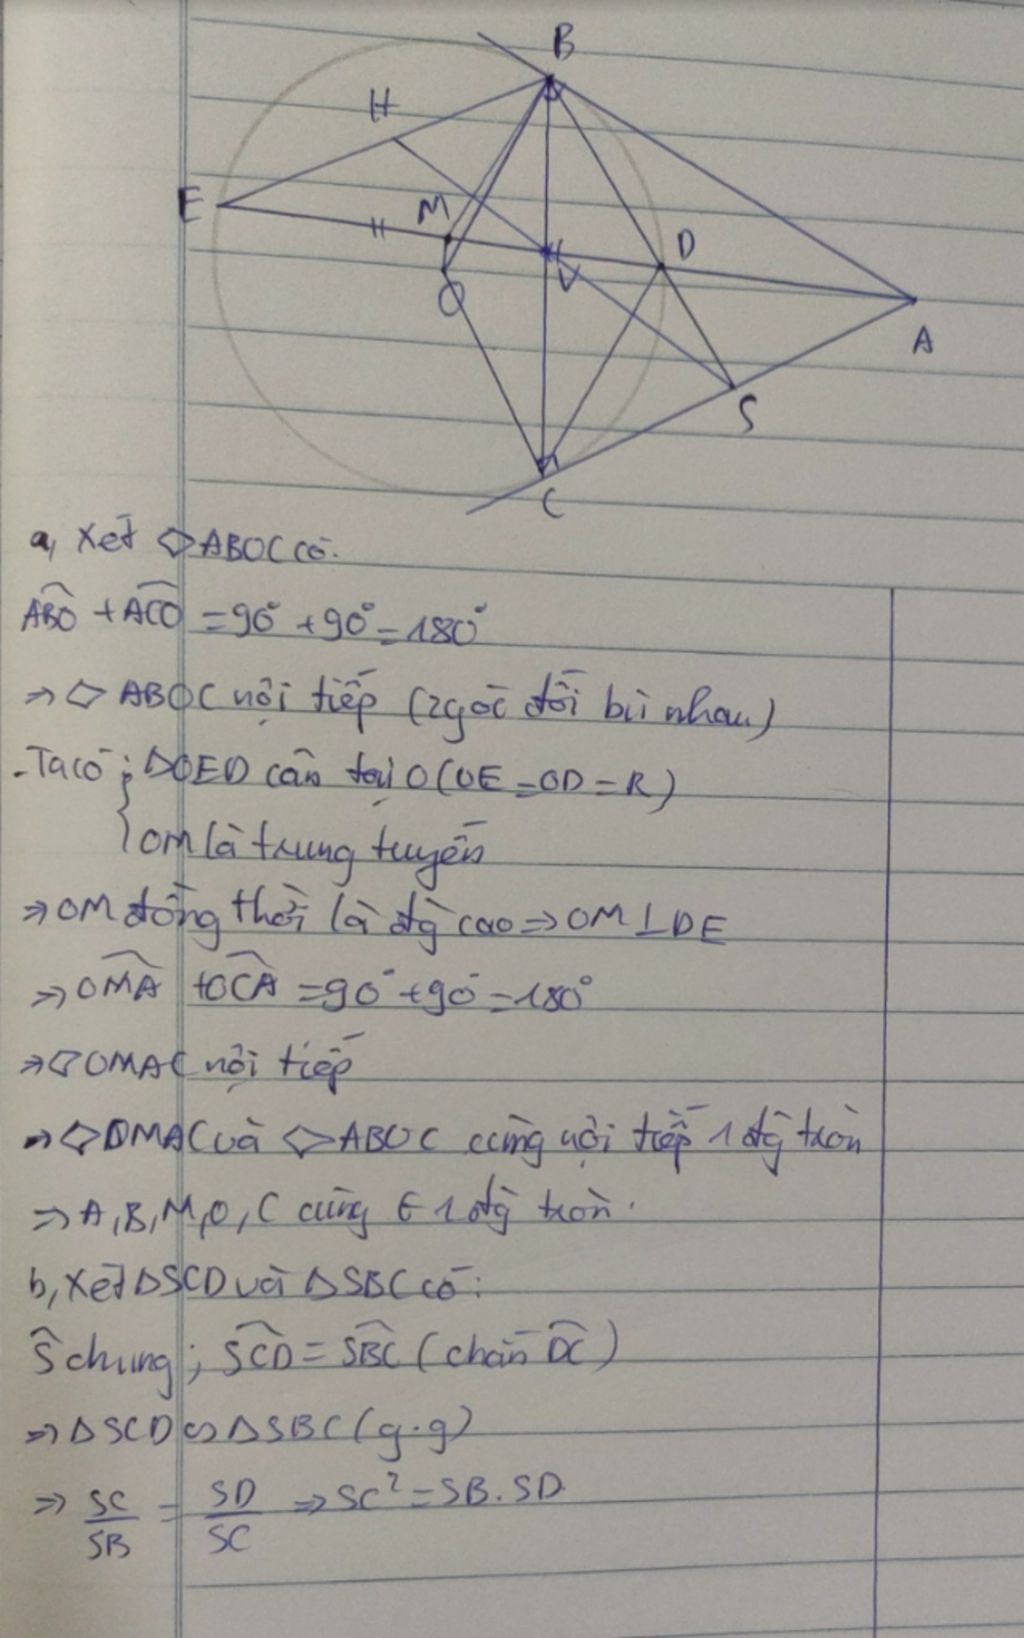 B
H
E
M
D
V
O
A
S
C
a, Xét ◇ABOC có.
ABO + ACO = 90° + 90° = 180°
⇒ ◇ ABOC nội tiếp (2góc đối bù nhau)
- Ta có: ΔOED cân tại O (OE = OD = R)
OM là trung tuyến
⇒ OM đồng thời là đg cao ⇒ OM ⊥ DE
⇒ OMA + OCA = 90° + 90° = 180°
⇒ ◇ OMAC nội tiếp
⇒ ◇ OMAC và ◇ ABOC cùng nội tiếp 1 đg tròn
⇒ A, B, M, O, C cùng ∈ 1 đg tròn.
b, Xét ΔSCD và ΔSBC có:
Ŝ chung; SCD = SBC (chắn DC)
⇒ ΔSCD ∽ ΔSBC (g.g)
⇒ SC/SB = SD/SC ⇒ SC² = SB.SD